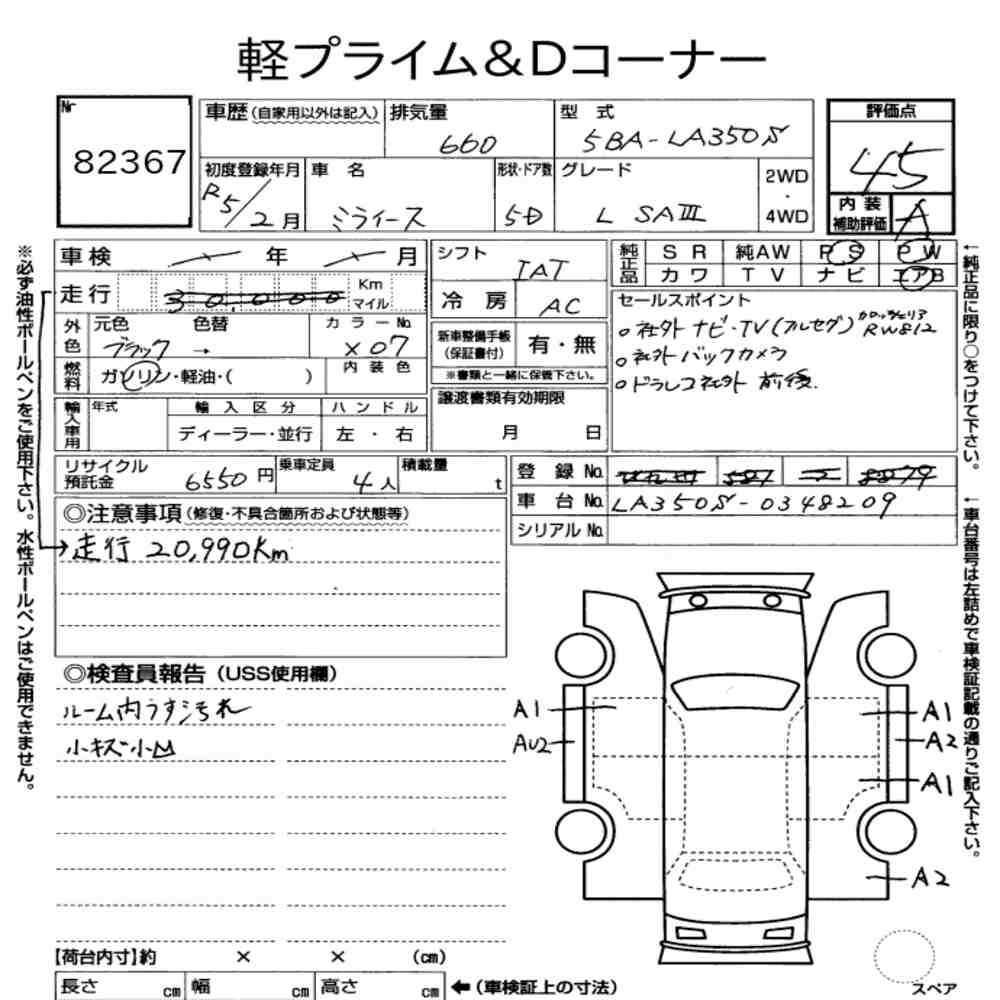 軽プライム&Dコーナー
Nr
82367
車歴(自家用以外は記入)
排気量
660
型 式
5BA-LA350S
評価点
45
初度登録年月
R5/2月
車 名
ミライース
形状・ドア数
5D
グレード
L SAⅢ
2WD
・
4WD
内 装
補助評価
A
車検 年 月
走行 30,000 Km
マイル
外色
元色 色替
ブラック →
カラーNo.
X07
燃料
ガソリン・軽油・( )
内 装 色
輸入車用
年式
輸 入 区 分
ディーラー・並行
ハ ン ド ル
左 ・ 右
シフト
IAT
冷 房
AC
新車整備手帳
(保証書付)
有・無
※書類と一緒に保管下さい。
譲渡書類有効期限
月 日
純正品
S R 純AW P S P W
カワ T V ナビ エアB
セールスポイント
○社外 ナビ・TV(フルセグ) カロッツェリア RW812
○社外 バックカメラ
○ドラレコ社外 前後.
リサイクル
預託金
6550円
乗車定員
4人
積載量
t
登 録 No.
車 台 No. LA350S-0348209
シリアル No.
◎注意事項(修復・不具合箇所および状態等)
→走行 20,990Km
◎検査員報告(USS使用欄)
ルーム内うすシ汚れ
小キズ小凹
A1
AU2
A1
A2
A1
A2
【荷台内寸】約 × × (cm)
長さ cm 幅 cm 高さ cm
←(車検証上の寸法)
スペア
※必ず油性ボールペンをご使用下さい。水性ボールペンはご使用できません。
←純正品に限り○をつけて下さい。
←車台番号は左詰めで車検証記載の通りご記入下さい。